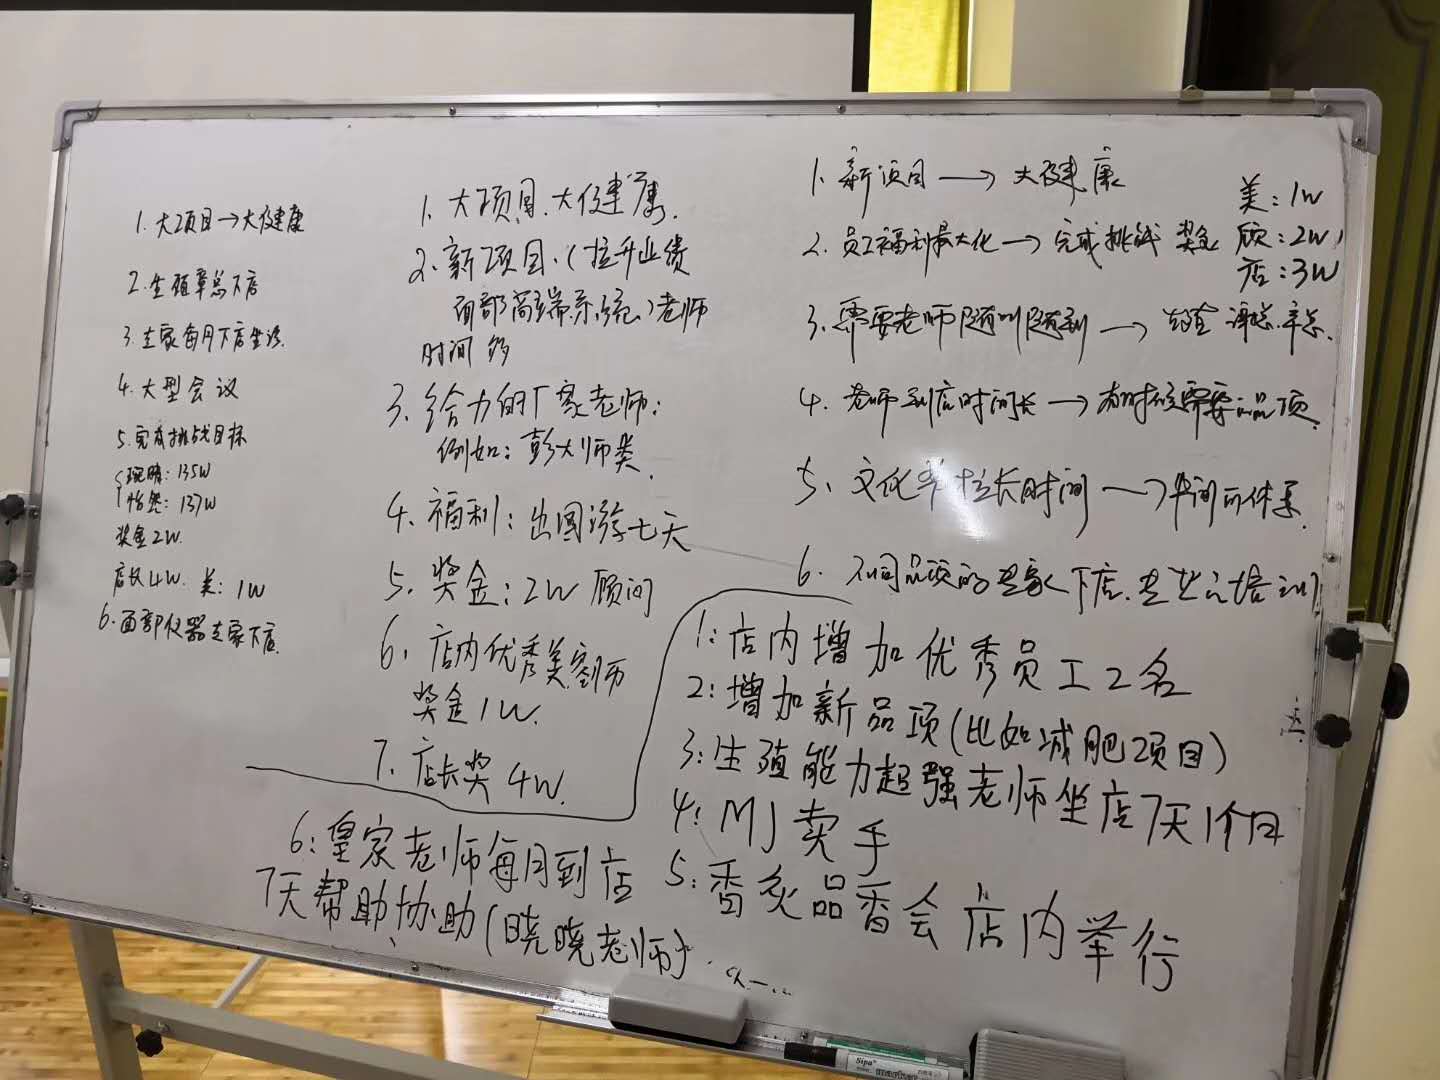 1. 大项目→大健康
2. 生殖章总下店
3. 专家每月下店坐诊.
4. 大型会议
5. 完成挑战目标
琬晴: 135W
怡然: 137W
奖金2W.
店长4W. 美: 1W
6. 面部仪器专家下店.
1、大项目、大健康.
2、新项目.(拉升业绩
面部高端系统)老师
时间多
3、给力的厂家老师:
例如: 彭大师类.
4、福利: 出国游七天
5、奖金: 2W 顾问
6、店内优秀美容师
奖金1W.
7、店长奖 4W.
1、新项目→大健康
美: 1W
2、员工福利最大化→完成挑战 奖金 顾:2W
店:3W
3、需要老师随叫随到→ 章总.
4、老师到店时间长→有时候需要品项.
5、文化 拉长时间→中间可休息.
6. 不同品项的专家下店.专业之培训
1: 店内增加优秀员工2名
2: 增加新品项(比如减肥项目)
3: 生殖能力超强老师坐店7天1个月
4: MJ卖手
5: 香灸品香会店内举行
6: 皇家老师每月到店
7天帮助、协助(晓晓老师)
Sipa
marker